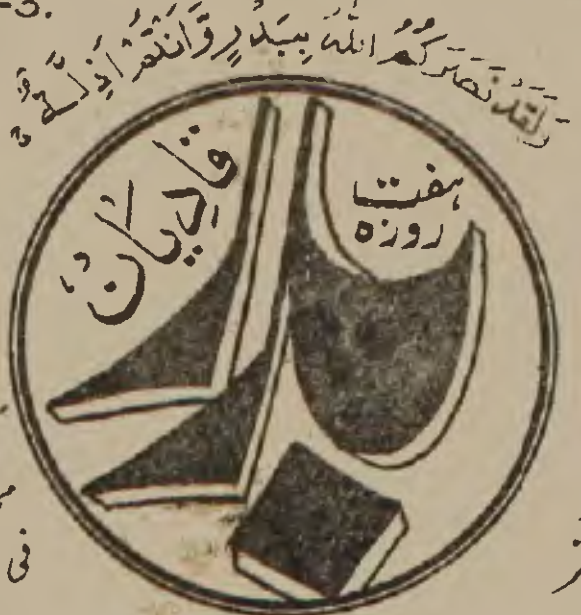 وَلَقَدْ نَصَرَكُمُ اللهُ بِبَدْرٍ وَّاَنْتُمْ اَذِلَّةٌ
ہفت
روزہ
بدر
قادیان
فی